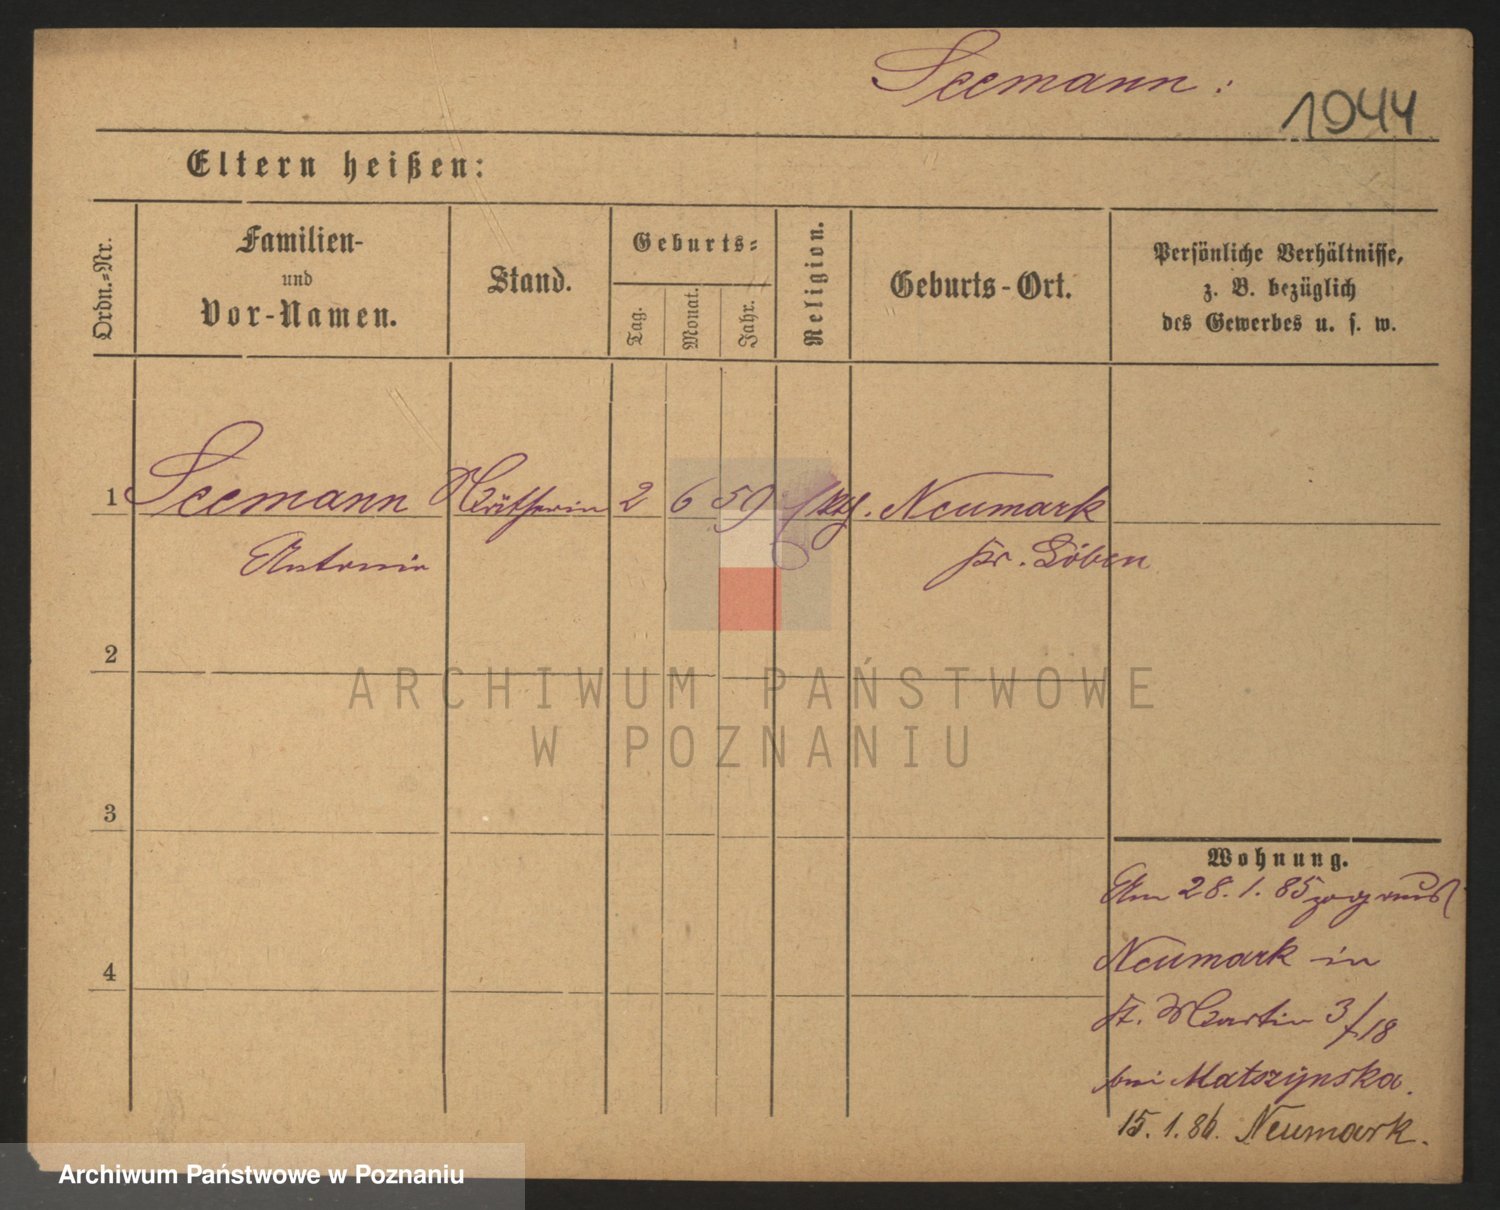 Seemann:
1944
Eltern heißen:
Ordn.-Nr.
Familien-
und
Vor-Namen.
Stand.
Geburts-
Tag.
Monat.
Jahr.
Religion.
Geburts-Ort.
Persönliche Verhältnisse,
z. B. bezüglich
des Gewerbes u. s. w.
1 Seemann 2 6 59 Neumark
Antonie pr. Löben
2
ARCHIWUM PAŃSTWOWE
W POZNANIU
3
Wohnung.
Am 28.1.85 zog aus
4
Neumark in
St. Martin 3/18
bei Matszynska.
15.1.86. Neumark.
Archiwum Państwowe w Poznaniu